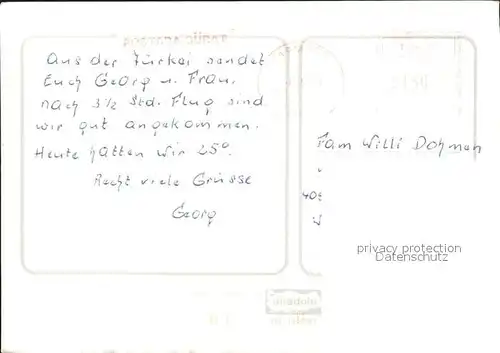 Aus der Türkei sendet
Euch Georg u. Frau.
nach 3½ Std. Flug sind
wir gut angekommen.
Heute hatten wir 25°.
Recht viele Grüsse
Georg
Fam Willi Dohmen
409
privacy protection
Datenschutz